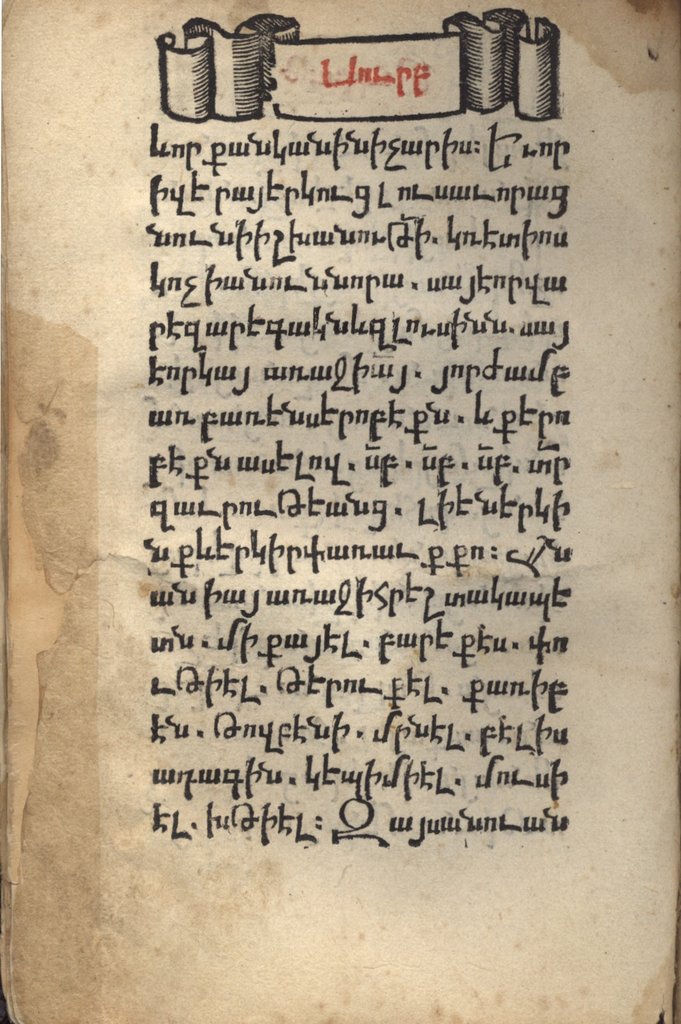 Ուրբ
ևոր քանկանինիչարիս։ Եւոր
իվէրայերկուց լուսաւորաց
նունիիշխանութի. կռէտիոս
կոչիանունսորա. սայէորվա
րէզարեգակնևզլուսինս. սայ
էորկայ առաջիայ. յորժամբ
առբառենսերոբէքս. և քերո
բէքն ասելով. սբ. սբ. սբ. տր
զաւրութեանց. լիեներկի
նքևերկիրփառաւքքո։ Այս
անիայառաջիհրէշտակապե
տս. միքայէլ. բարէքէս. փո
ւթիէլ. թերուքէլ. քառիբ
էս. թովբէնի. միսէլ. բէլիս
աղագին. կէպիմիէլ. մուսի
էլ. խթիէլ։ Զայսանուան